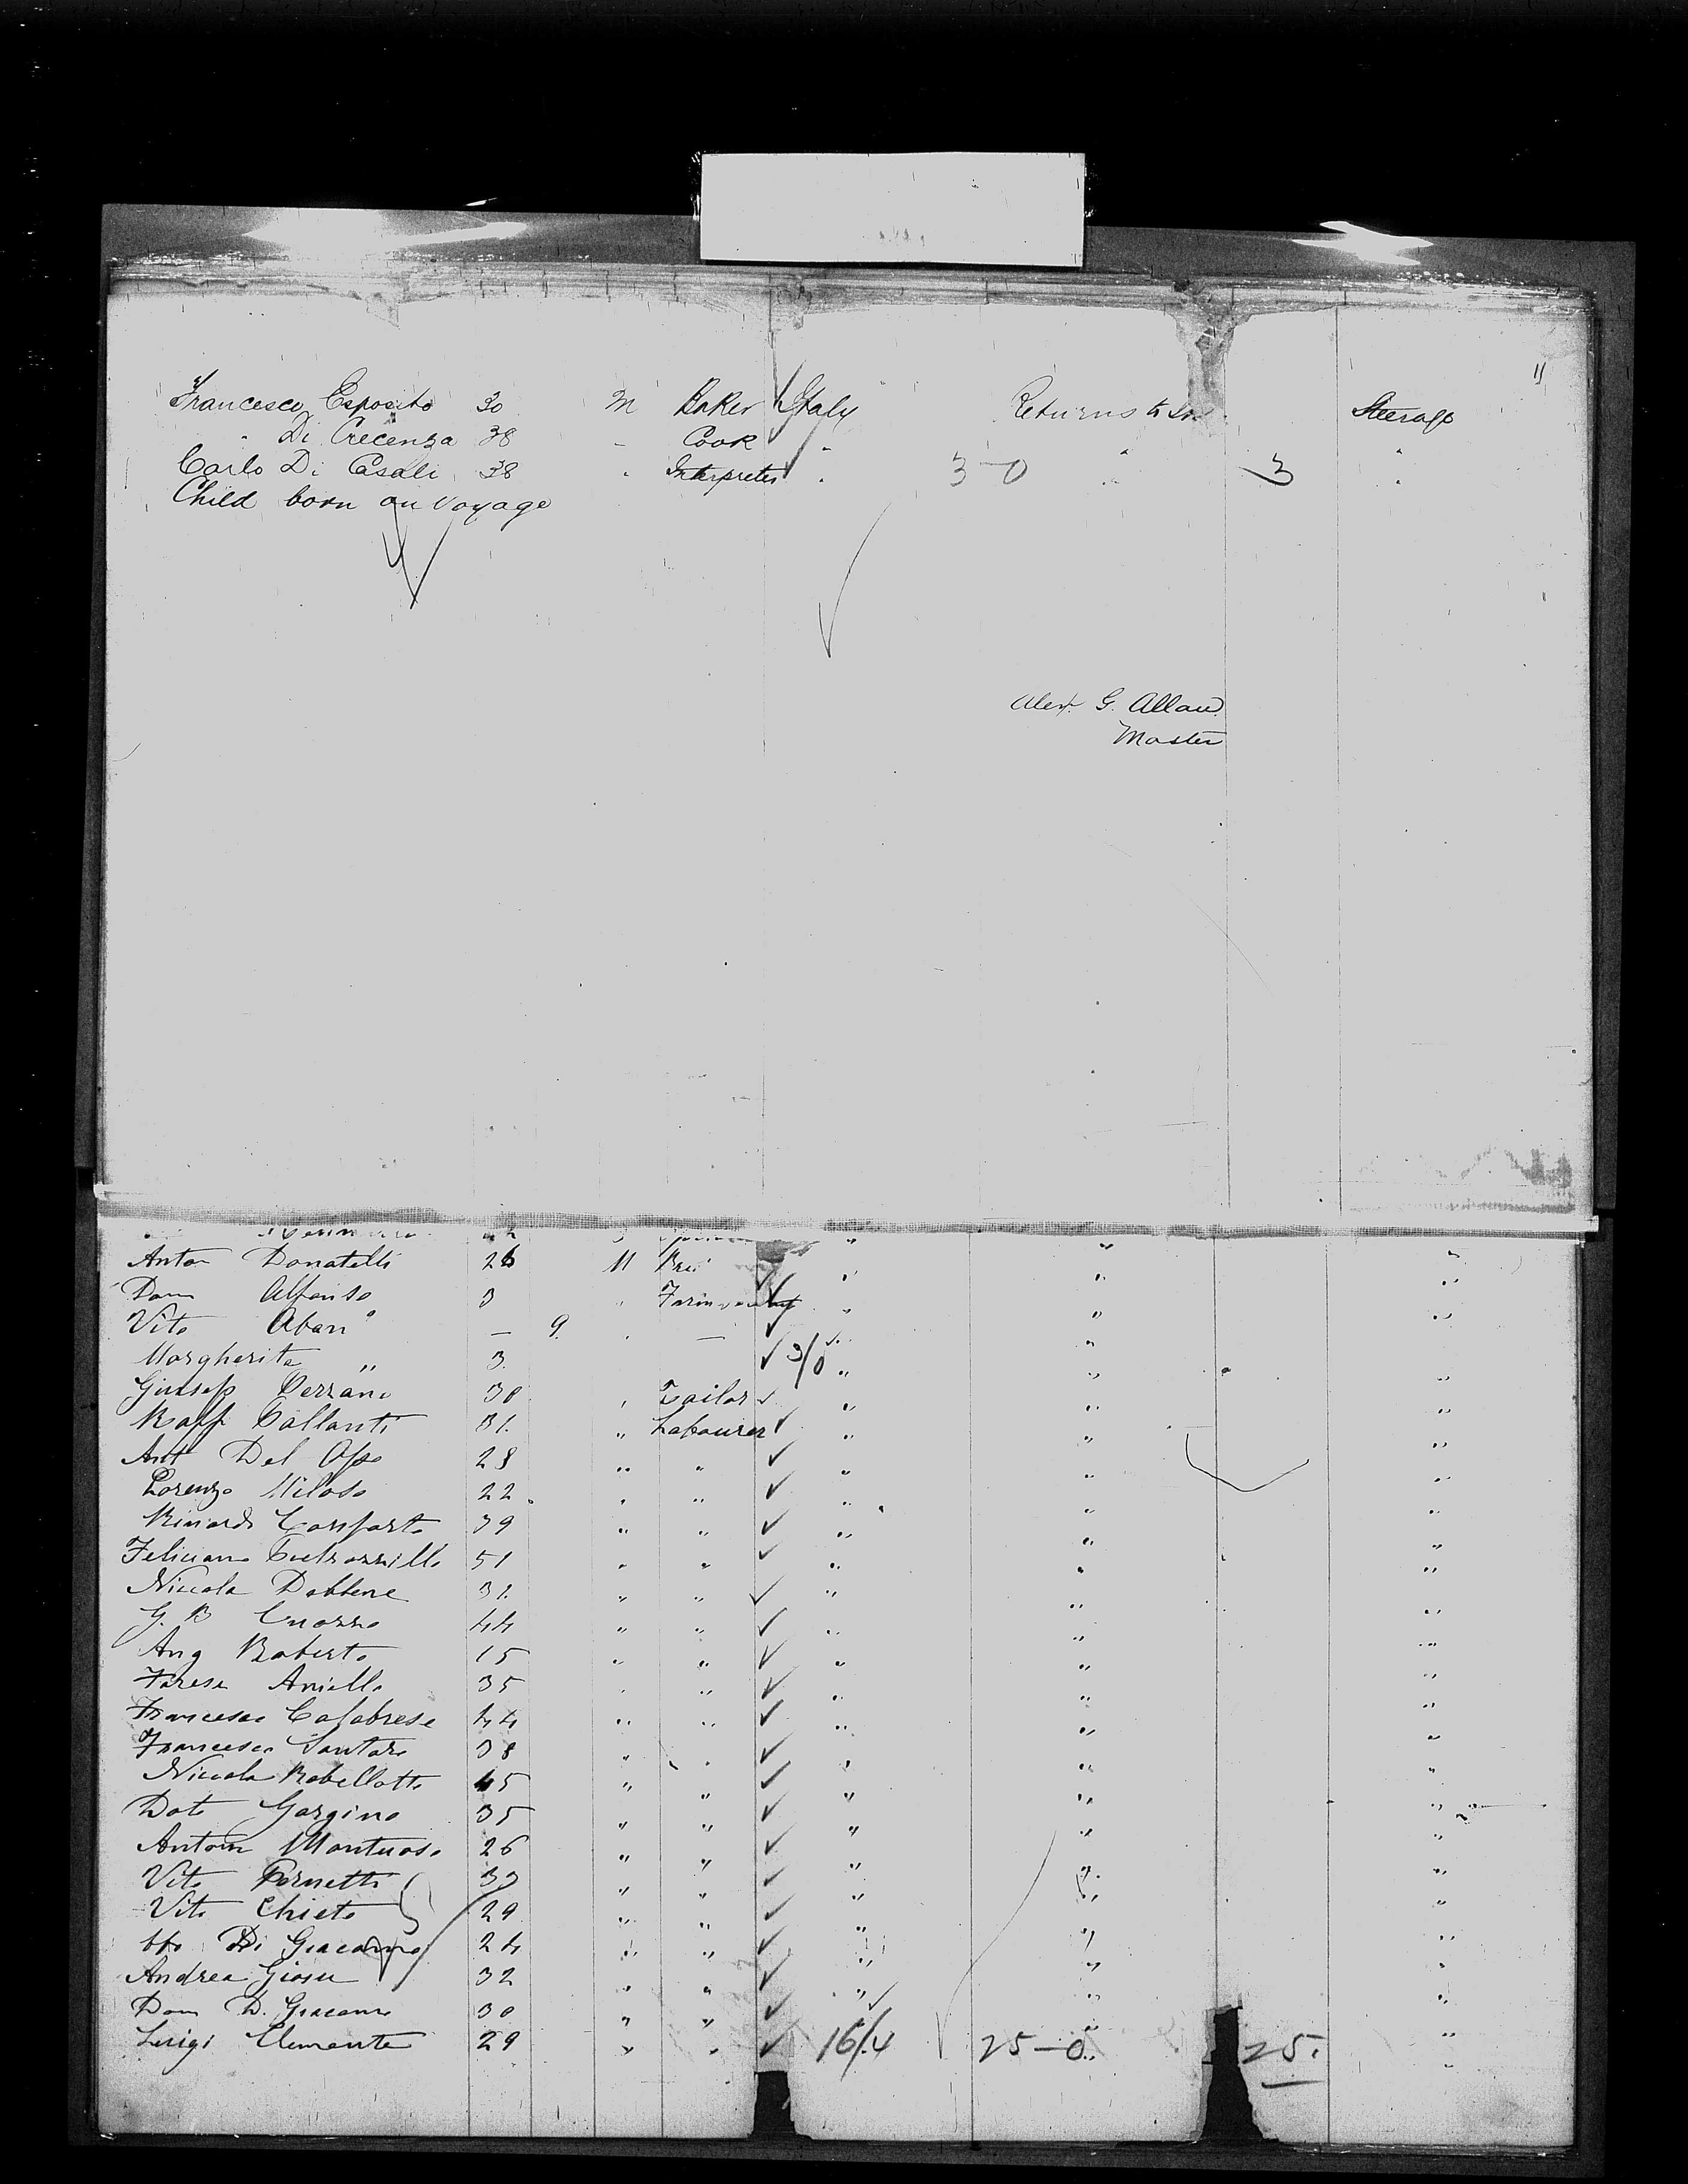 11
Francesco Esposito 30 M Baker Italy Returns to Steerage
" Di Crecenza 38 " Cook " " "
Carlo Di Casali 38 " Interpreter " 3-0 " 3 "
Child born on Voyage
Alex. G. Allan
Master
Anton Donatelli 26 M " " "
Dom Alfonso 3 " " " "
Vito Aban° — 9 " — " " "
Margherita " 3 3/0 " " "
Giusep 30 " Tailor " " "
Raff Gallanti 31 " Labourer " " "
Ant Del 28 " " " " "
Lorenzo Miloso 22 " " " " "
Conforto 39 " " " " "
Feliciano 51 " " " " "
Niccola 31 " " " " "
G. B Cuozzo 44 " " " " "
Ang Roberto 15 " " " " "
Farese Aniello 35 " " " " "
Francesco Calabrese 44 " " " " "
Francesco Santoro 38 " " " " "
Niccola Robellotto 45 " " " " "
Dato Gargino 35 " " " " "
Anton Montuoso 26 " " " " "
Vito 33 " " " " "
Vito Chieto 29 " " " " "
Di Giacomo 24 " " " " "
Andrea Giosu 32 " " " " "
Dom D. Giacomo 30 " " " " "
Luigi Clemente 29 " " 16/4 25-0 " 25. "